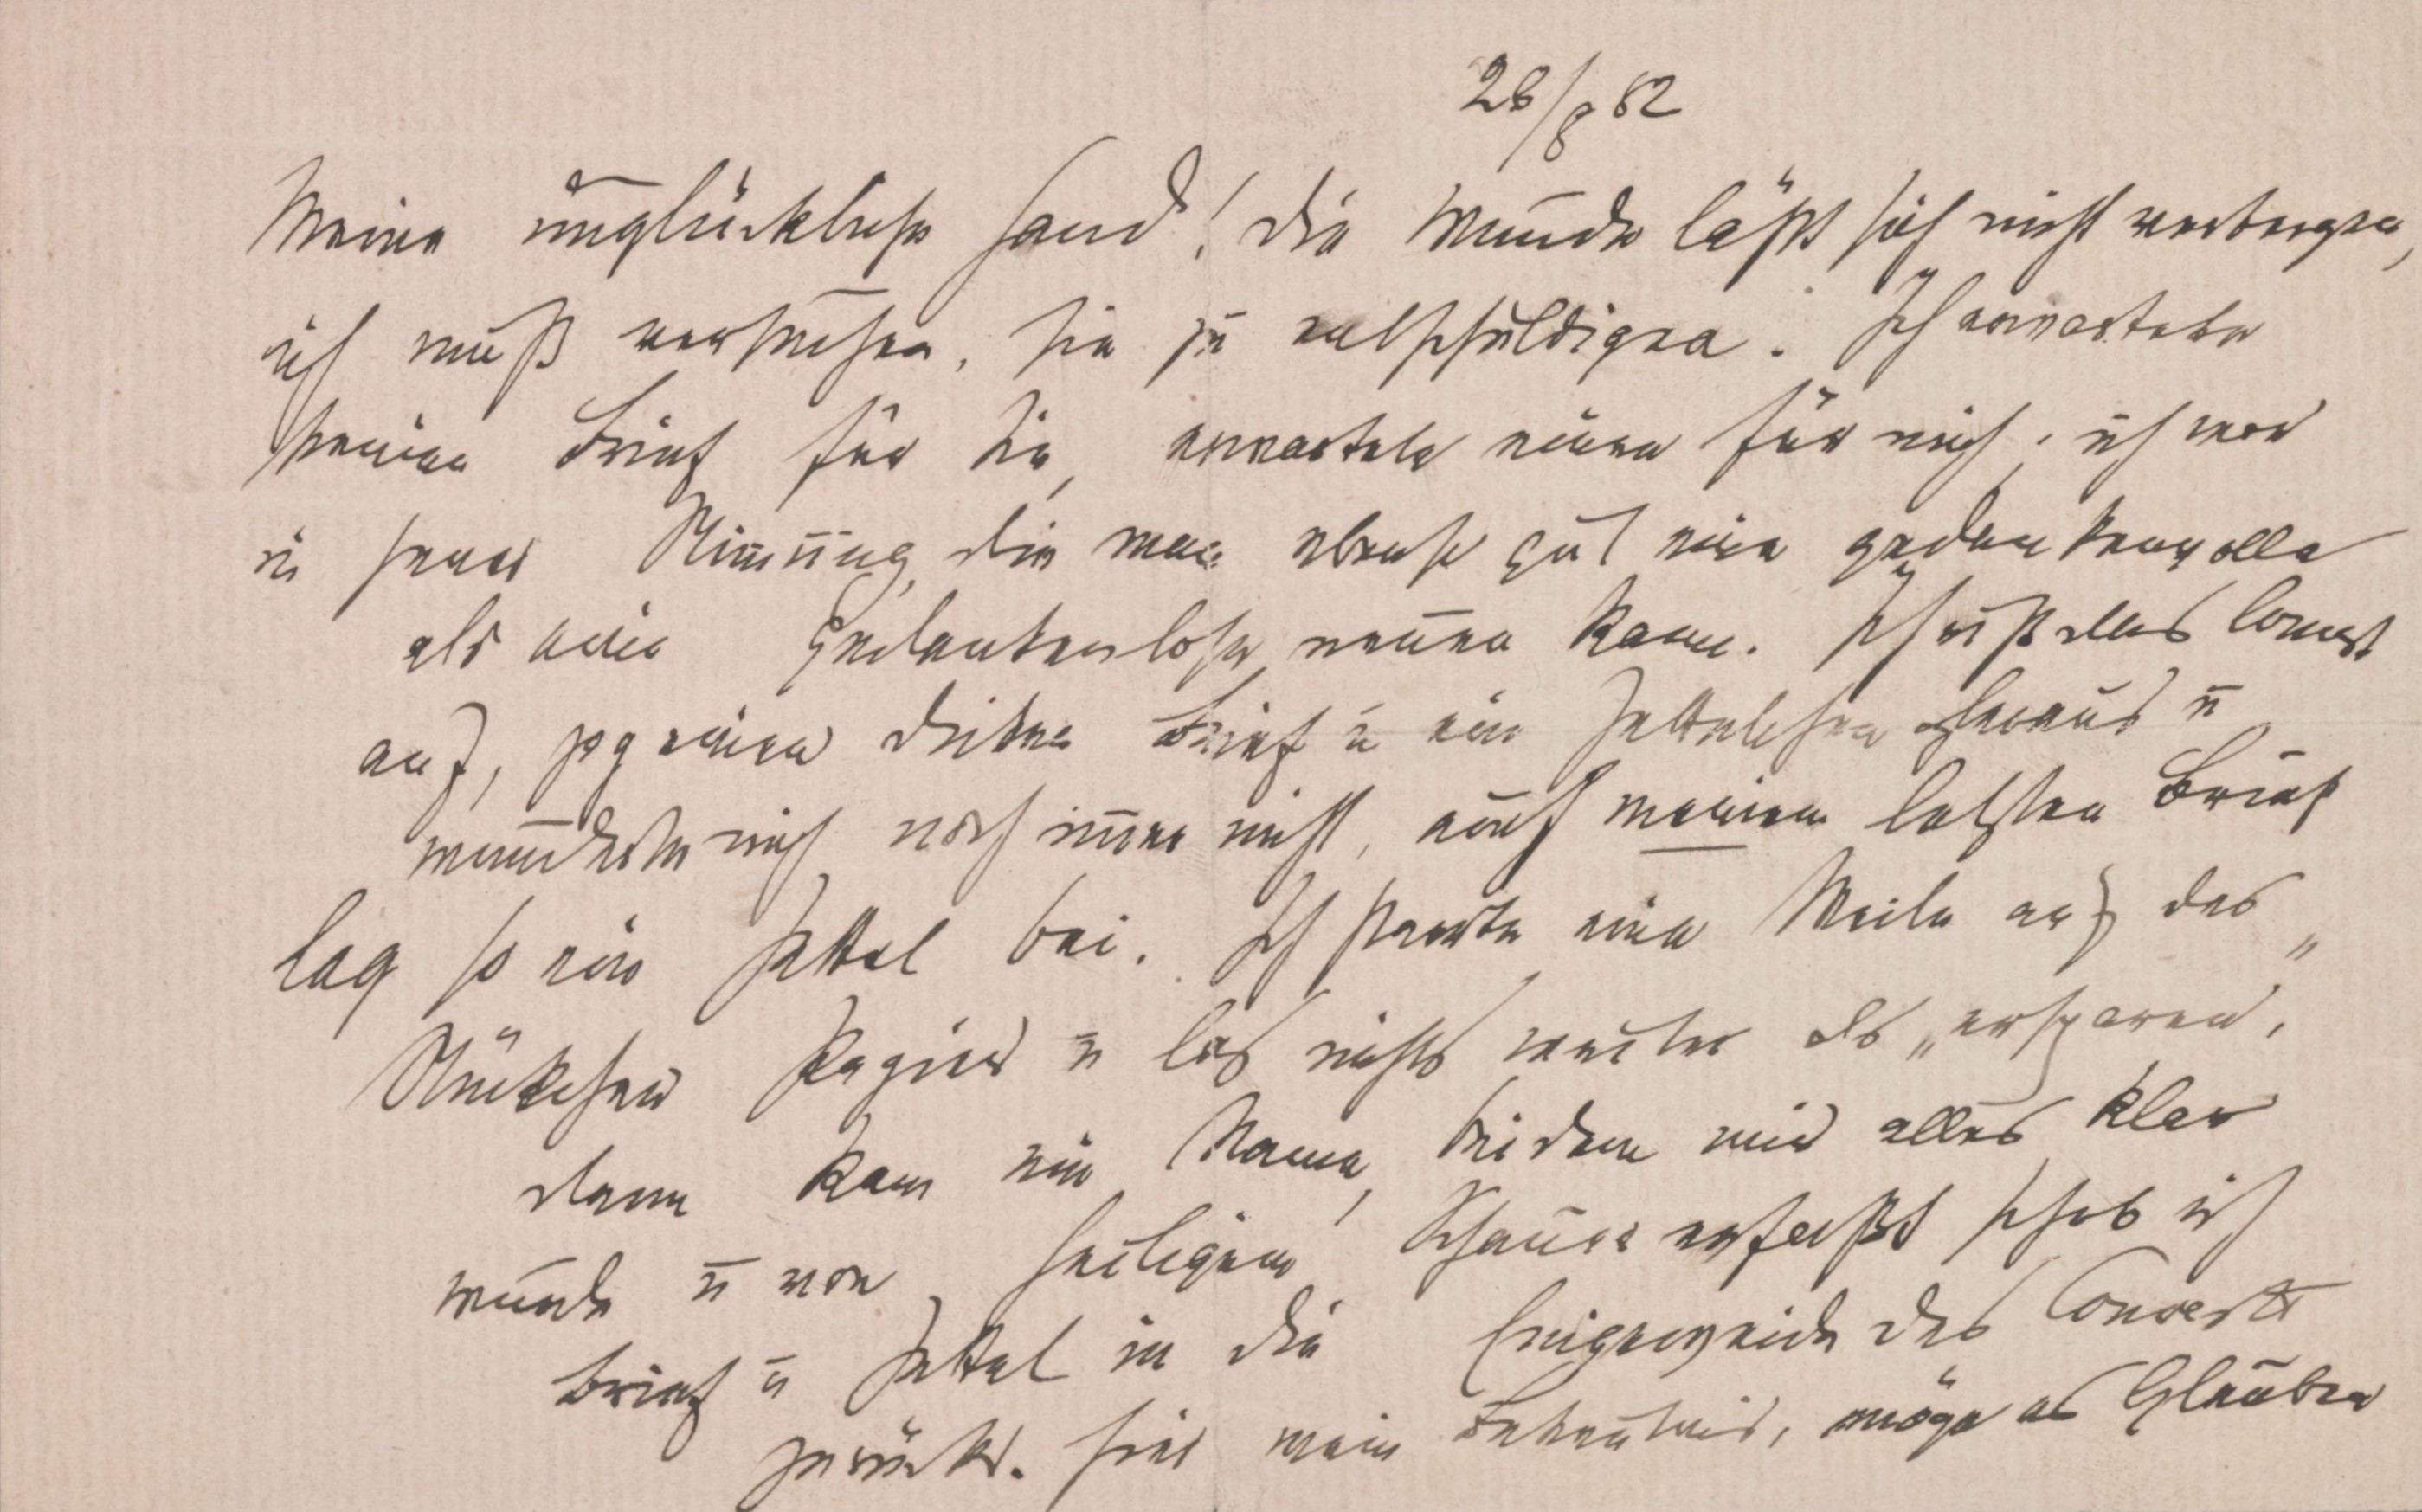 28/8 82
Meine unglückliche Hand! Die Wunde läßt sich nicht verbergen,
ich muß versuchen, sie zu entschuldigen. Ich erwartete
keinen Brief für Sie, erwartete einen für mich; ich war
in jener Stimmung, die man ebenso gut eine gedankenvolle
als eine gedankenlose nennen kann. Ich riß das Couvert
auf, zog einen dicken Brief u ein Zettelchen heraus u
wunderte mich noch immer nicht, auch meinem letzten Brief
lag so ein Zettel bei. Ich starrte eine Weile auf das
Stückchen Papier u las nichts weiter als „ersparen",
dann kam ein Name, bei dem mir alles klar
wurde u von heiligem Schauer erfaßt schob ich
Brief u Zettel in die Eingeweide des Couverts
zurück. Hier mein Bekenntnis, möge es Glauben